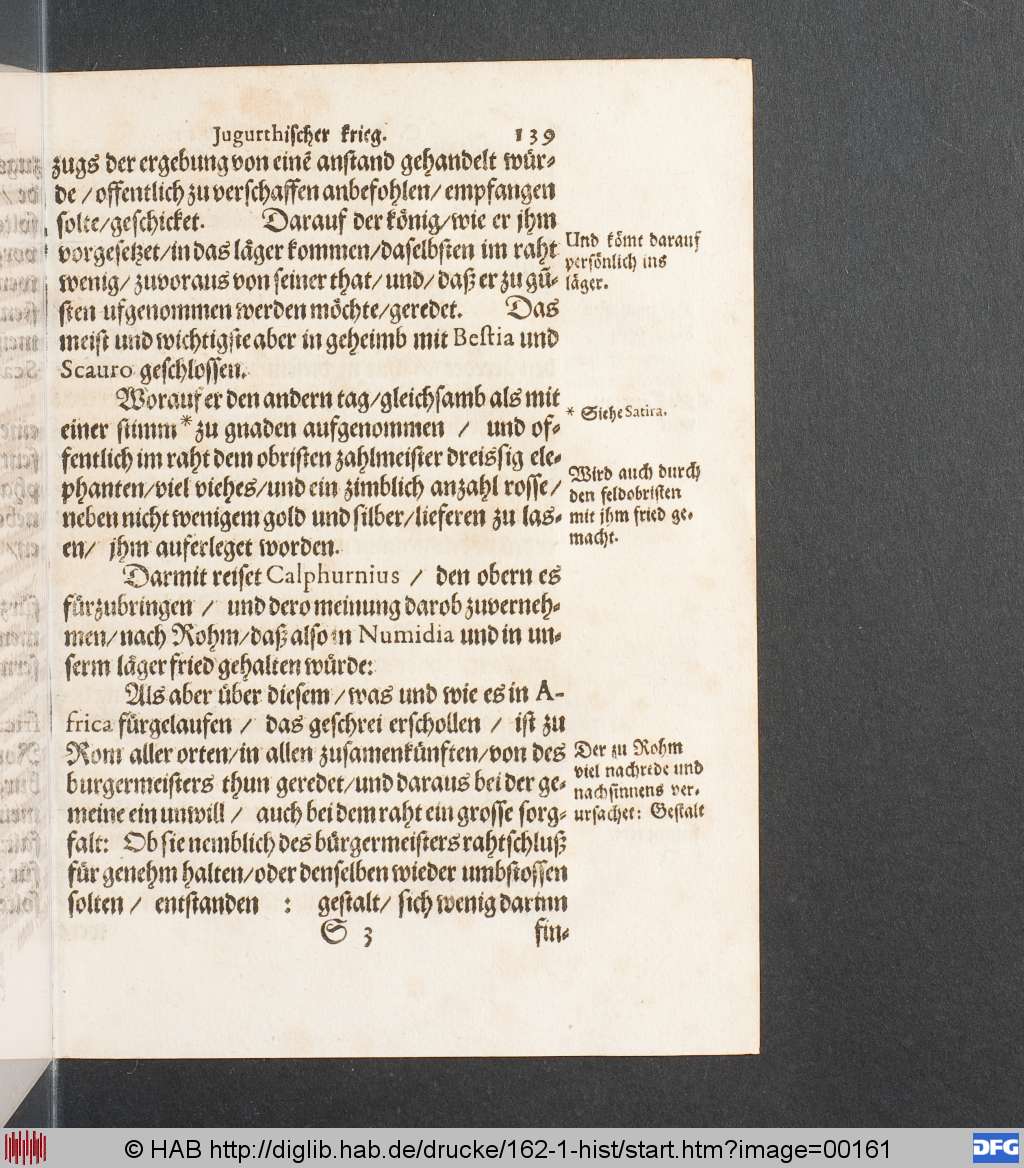 Jugurthischer krieg. 139
zugs der ergebung von einē anstand gehandelt wür-
de / offentlich zu verschaffen anbefohlen / empfangen
solte / geschicket. Darauf der könig / wie er jhm
vorgesetzet / in das läger kommen / daselbsten im raht
wenig / zuvoraus von seiner that / und / daß er zu gü-
sten ufgenommen werden möchte / geredet. Das
meist und wichtigste aber in geheimb mit Bestia und
Scauro geschlossen.
Und kömt darauf
persönlich ins
läger.
Worauf er den andern tag / gleichsamb als mit
einer stimm * zu gnaden aufgenommen / und of-
fentlich im raht dem obristen zahlmeister dreissig ele-
phanten / viel viehes / und ein zimblich anzahl rosse /
neben nicht wenigem gold und silber / lieferen zu las-
en / jhm auferleget worden.
* Siehe Satira.
Wird auch durch
den feldobristen
mit jhm fried ge-
macht.
Darmit reiset Calphurnius / den obern es
fürzubringen / und dero meinung darob zuverneh-
men / nach Rohm / daß also in Numidia und in un-
serm läger fried gehalten würde:
Als aber über diesem / was und wie es in A-
frica fürgelaufen / das geschrei erschollen / ist zu
Rom aller orten / in allen zusamenkünften / von des
burgermeisters thun geredet / und daraus bei der ge-
meine ein unwill / auch bei dem raht ein grosse sorg-
falt: Ob sie nemblich des bürgermeisters rahtschluß
für genehm halten / oder denselben wieder umbstossen
solten / entstanden : gestalt / sich wenig darinn
Der zu Rohm
viel nachrede und
nachsinnens ver-
ursachet: Gestalt
S 3 fin-
© HAB http://diglib.hab.de/drucke/162-1-hist/start.htm?image=00161
DFG